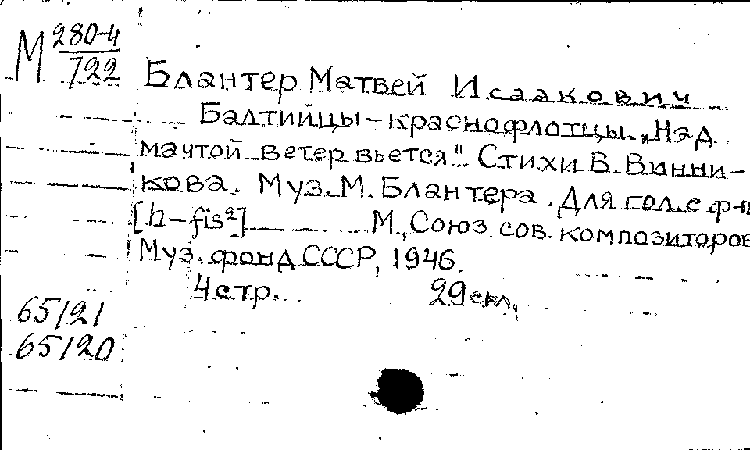 М 280-4
722
Блантер Матвей Исаакович
Балтийцы-краснофлотцы. „Над
мачтой ветер вьется". Стихи В. Винни-
кова. Муз. М. Блантера. Для гол. с ф-п
[h-fis²] М., Союз сов. композиторов
Муз. фонд СССР, 1946.
4 стр. 29 см.
65/21
65/20